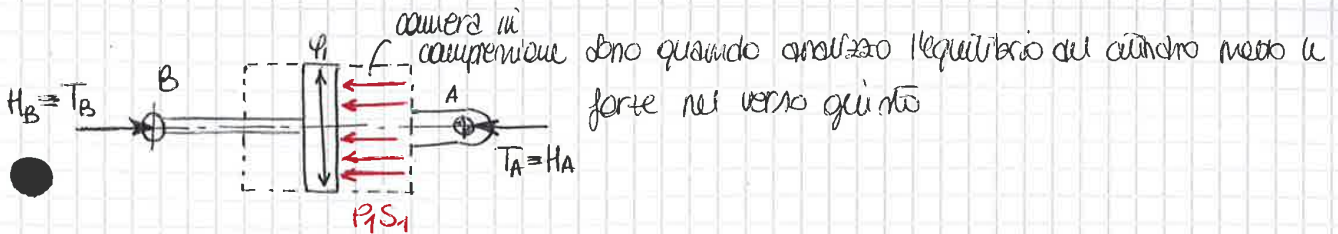 camera in
compressione dono quando analizzo l'equilibrio del cilindro metto le
forze nel verso giusto
φ1
H_B = T_B
B
A
T_A = H_A
P1S1